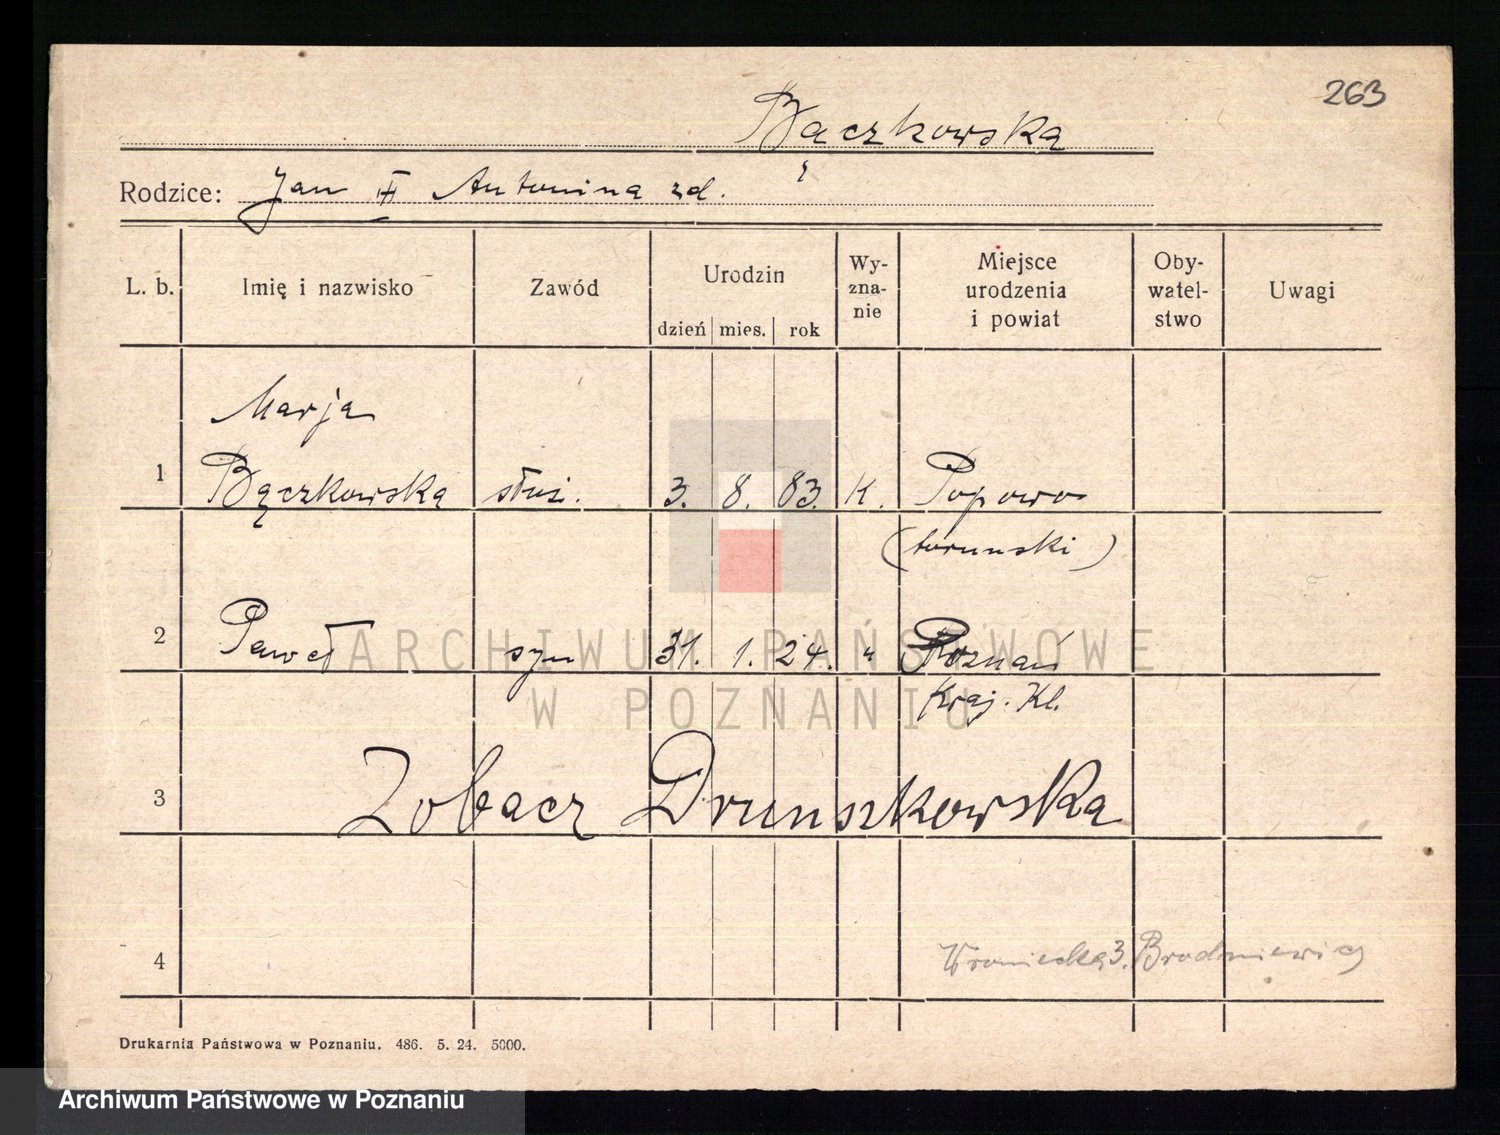 263
Bączkowska
Rodzice: Jan Antonina zd.
L. b. Imię i nazwisko Zawód Urodzin dzień mies. rok Wy-zna-nie Miejsce urodzenia i powiat Oby-watel-stwo Uwagi
Marja
1 Bączkowska służ. 3. 8. 83. K. Popowo
(toruński)
2 Paweł syn 31. 1. 24. " Poznań
Kraj. Kl.
3 Zobacz Druszkowska
4 Wroniecka 3.
Drukarnia Państwowa w Poznaniu. 486. 5. 24. 5000.
ARCHIWUM PAŃSTWOWE
W POZNANIU
Archiwum Państwowe w Poznaniu